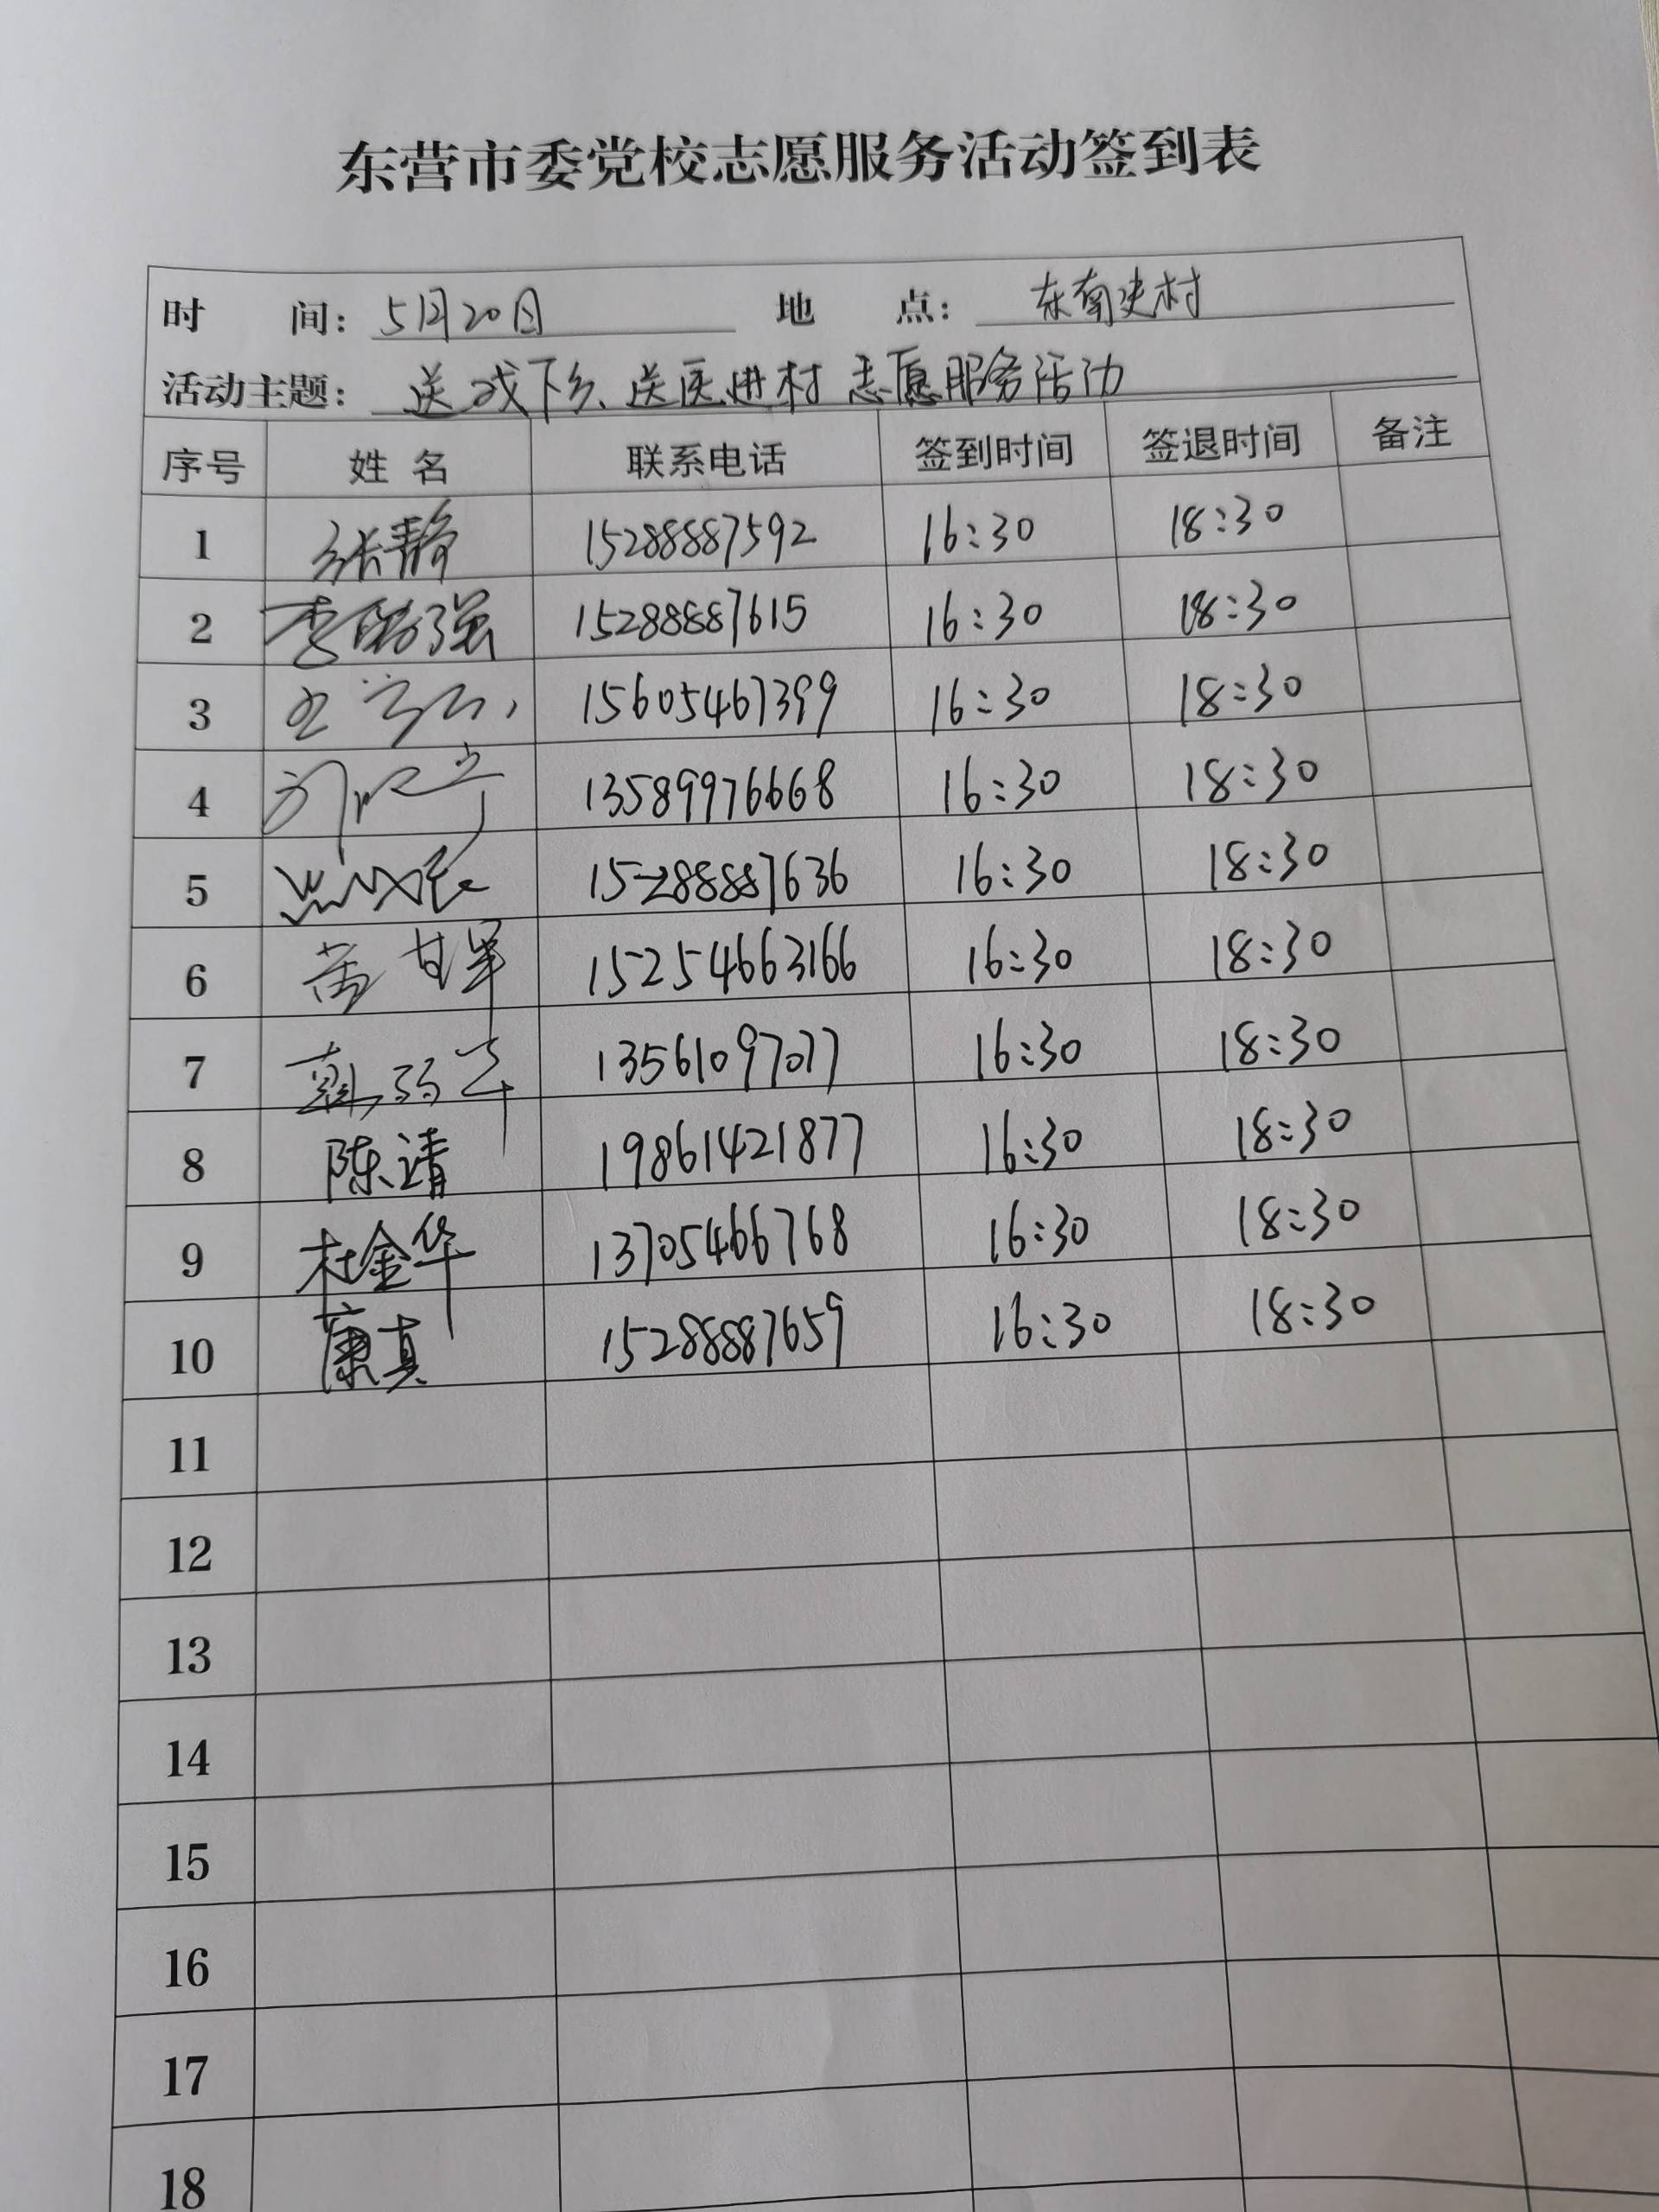 东营市委党校志愿服务活动签到表
时 间: 5月20日 地 点: 东商史村
活动主题: 送戏下乡、送医进村 志愿服务活动
序号 姓 名 联系电话 签到时间 签退时间 备注
1 张静 15288887592 16:30 18:30
2 李 强 15288887615 16:30 18:30
3 15605467399 16:30 18:30
4 13589976668 16:30 18:30
5 15288887636 16:30 18:30
6 15254663166 16:30 18:30
7 13561097077 16:30 18:30
8 陈靖 19861421877 16:30 18:30
9 杜金华 13705466768 16:30 18:30
10 康真 15288887659 16:30 18:30
11
12
13
14
15
16
17
18